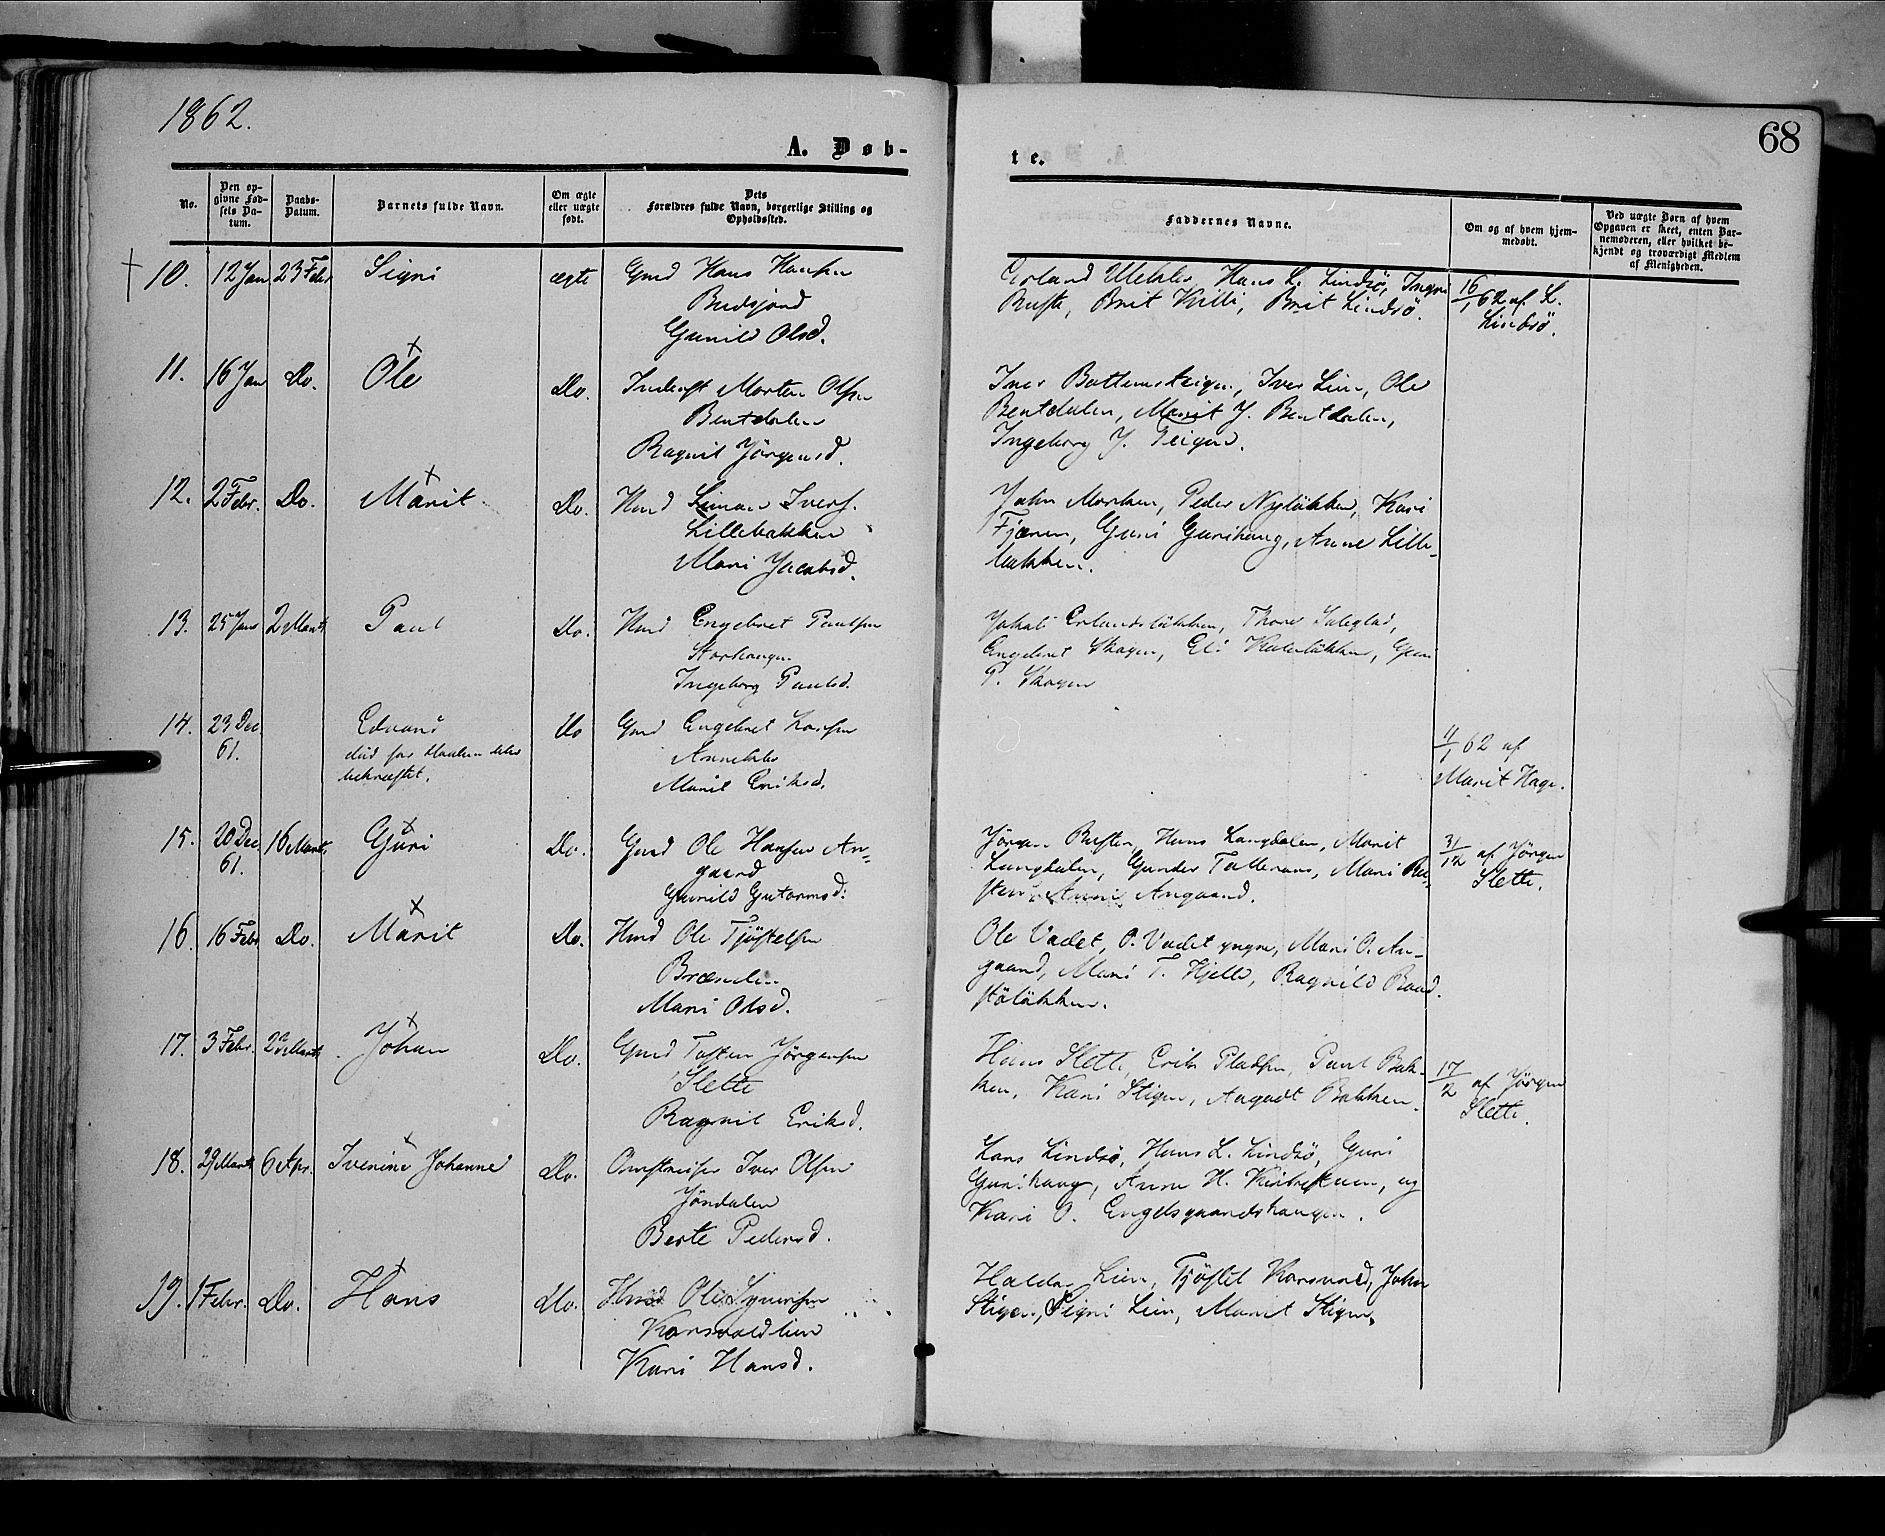 1862.
A. Døb-
te.
68
No.
Den op-
givne Fød-
sels Da-
tum.
Daabs-
Datum.
Barnets fulde Navn.
Om ægte
eller uægte
født.
Dets
Forældres fulde Navn, borgerlige Stilling og
Opholdssted.
Faddernes Navne.
Om og af hvem hjem-
medøbt.
Ved uægte Børn af hvem
Opgaven er skeet, enten Bar-
nemoderen, eller hvilket be-
kjendt og troværdigt Medlem
af Menigheden.
† 10. 12 Jan 23 Febr Signi ægte Gmd Hans Hansen
Budsjord
Gunild Olsd.
Erland Hans L. Lindsö, Ingri
Brit Killi, Brit Lindsö.
16/1 62 af L.
Lindsö.
11. 16 Jan Do. Ole Do. Inderst Morten Olsen
Bentdalen
Ragnil Jörgensd.
Iver Bottemsteigen, Iver Lien, Ole
Bentdalen, Marit J. Bentdalen,
Ingeborg J. Teigen.
12. 2 Febr. Do. Marit Do. Hmd Simen Ivers.
Lillebakken
Mari Jacobsd.
John Morken, Peder Nyløkken, Kari
Fjæren, Guri Gurihaug, Anne Lille-
bakken.
13. 25 Jan 2 Marts Paul Do. Hmd Engebret Paulsen
Storhaugen
Ingeborg Paulsd.
Jakob Erlandsløkken, Thore
Engebret Skogen, Eli Guri
P. Skogen
14. 23 Dec
61. Edvard
død før Daaben blev
bekræftet.
Do Gmd Engebret Larsen
Marit Eriksd.
4/1 62 af
Marit Hage.
15. 20 Dec
61. 16 Marts Guri Do. Gmd Ole Hansen An-
gaard
Gunild Gutormsd.
Jörgen Rusten, Hans Langdalen, Marit
Langdalen, Gunder Talleraas, Mari Ru-
sten, Anni Angaard.
31/12 af Jörgen
Slette.
16. 16 Febr Do. Marit Do. Hmd Ole Tjöstelsen
Brænden
Mari Olsd.
Ole Vadet, O. Vadet yngre, Mari O. An-
gaard, Mari T. Hjelle, Ragnild Baad-
støløkken.
17. 3 Febr. 22 Marts Johan Do. Gmd Tosten Jörgensen
Slette
Ragnil Eriksd.
Hans Slette, Erik Pladsen, Paul Bak-
ken, Kari Stigen, Bakken.
17/2 af Jörgen
Slette.
18. 29 Marts 6 Apr. Iverine Johanne Do. Iver Olsen
Jöndalen
Berte Pedersd.
Lars Lindsö, Hans L. Lindsö, Guri
Gurihaug, Anne H. og
Kari O. Engelsgaardshaugen.
19. 1 Febr. Do. Hans Do. Hmd Ole Syversen
Korsvoldlien
Kari Hansd.
Haldor Lien, Tjöstel Korsvold, John
Stigen, Signi Lien, Marit Stigen.